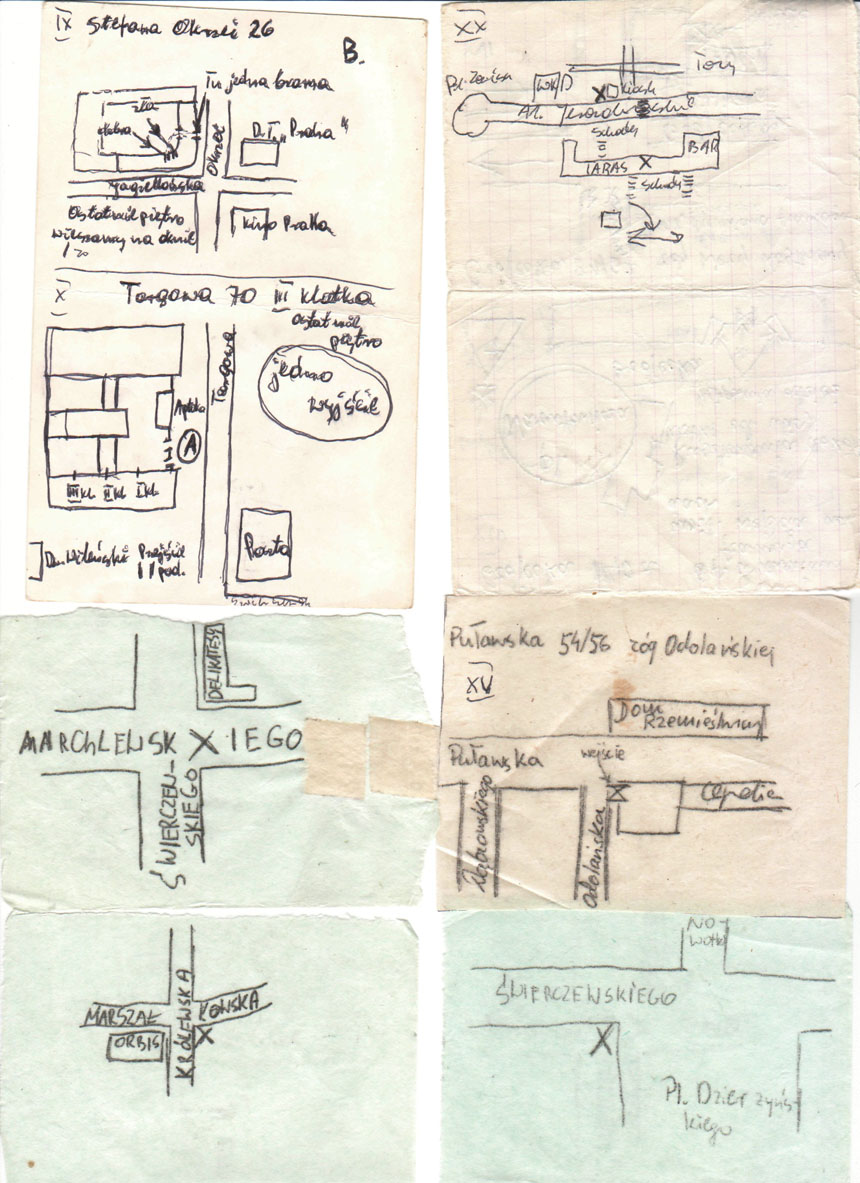 IX Stefana Okrzei 26
B.
Tu jedna brama
Okrzei
D.T. „Praha"
Jagiellońska
Ostatnie piętro
kino Praha
X Targowa 70 III klatka
Ostatnie
piętro
jedno
wyjście
Targowa
Apteka
A
III kl. II kl. I kl.
Poczta
Dw. Wileński Przejście
pod.
XX
Tory
kiosk
Al.
schody
BAR
TARAS
schody
DELIKATESY
MARCHLEWSK X IEGO
ŚWIERCZEW-
SKIEGO
Puławska 54/56 róg Odolańskiej
XV
Dom
Rzemieślniczy
Puławska
wejście
Dąbrowskiego
Odolańska
Cepelia
MARSZAŁ KOWSKA
ORBIS
KRÓLEWSKA
X
NO-
wotki
ŚWIERCZEWSKIEGO
X
Pl. Dzierżyńs-
kiego